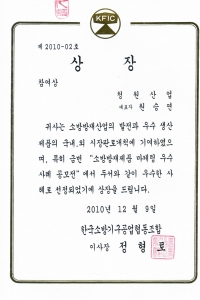 KFIC
제 2010-02호
상 장
참여상
청 원 산 업
대표자 원 승 연
귀사는 소방방재산업의 발전과 우수 생산
제품의 국내,외 시장판로개척에 기여하였으
며, 특히 금번 "소방방재제품 마케팅 우수
사례 공모전"에서 두서와 같이 우수한 사
례로 선정되었기에 상장을 드립니다.
2010년 12월 9일
한국소방기구공업협동조합
이사장 정 형 로